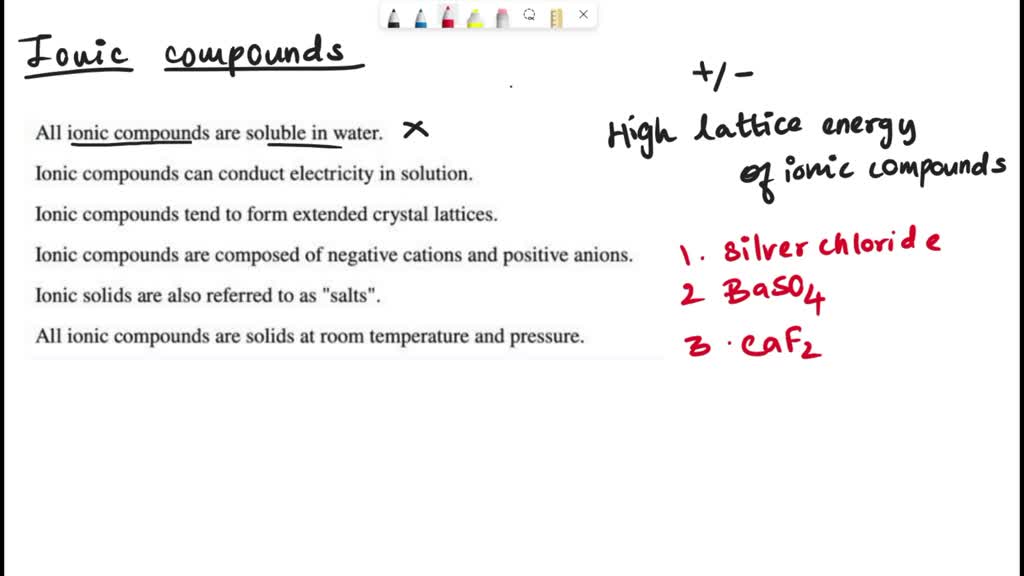 Ionic compounds
All ionic compounds are soluble in water. ×
Ionic compounds can conduct electricity in solution.
Ionic compounds tend to form extended crystal lattices.
Ionic compounds are composed of negative cations and positive anions.
Ionic solids are also referred to as "salts".
All ionic compounds are solids at room temperature and pressure.
+/-
High lattice energy
of ionic compounds
1. Silver chloride
2 BaSO4
3. CaF2